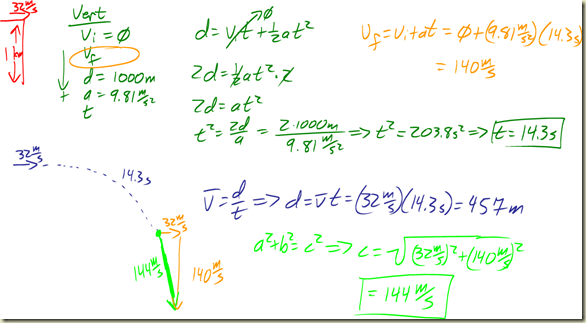 32 m/s
1 km
Vert
Vi = Ø
Vf
d = 1000m
a = 9.81 m/s²
t
+
d = Vit + ½at²
Ø
2d = ½at²·2
2d = at²
t² = 2d/a = 2·1000m / 9.81 m/s² => t² = 203.8s² => t = 14.3s
Vf = Vi + at = Ø + (9.81 m/s²)(14.3s)
= 140 m/s
32 m/s
14.3s
32 m/s
144 m/s
140 m/s
V̅ = d/t => d = V̅t = (32 m/s)(14.3s) = 457m
a² + b² = c² => c = √(32 m/s)² + (140 m/s)²
= 144 m/s